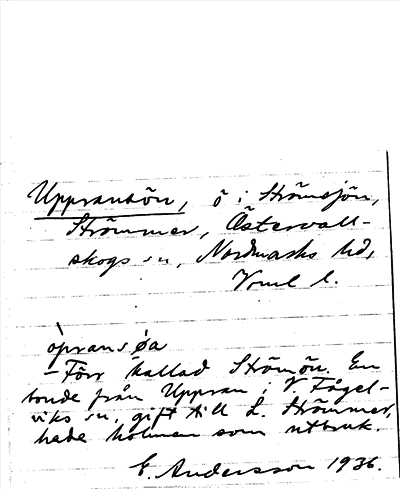 Uppransön, ö i Strömsjön,
Strömmer, Östervall-
skogs sn, Nordmarks hd,
Vrml l.
òprans,øa
– Förr kallad Stömön. En
bonde från Uppran i V. Fågel-
viks sn, gift till L. Strömmer,
hade holmen som utbruk.
E. Andersson 1936.